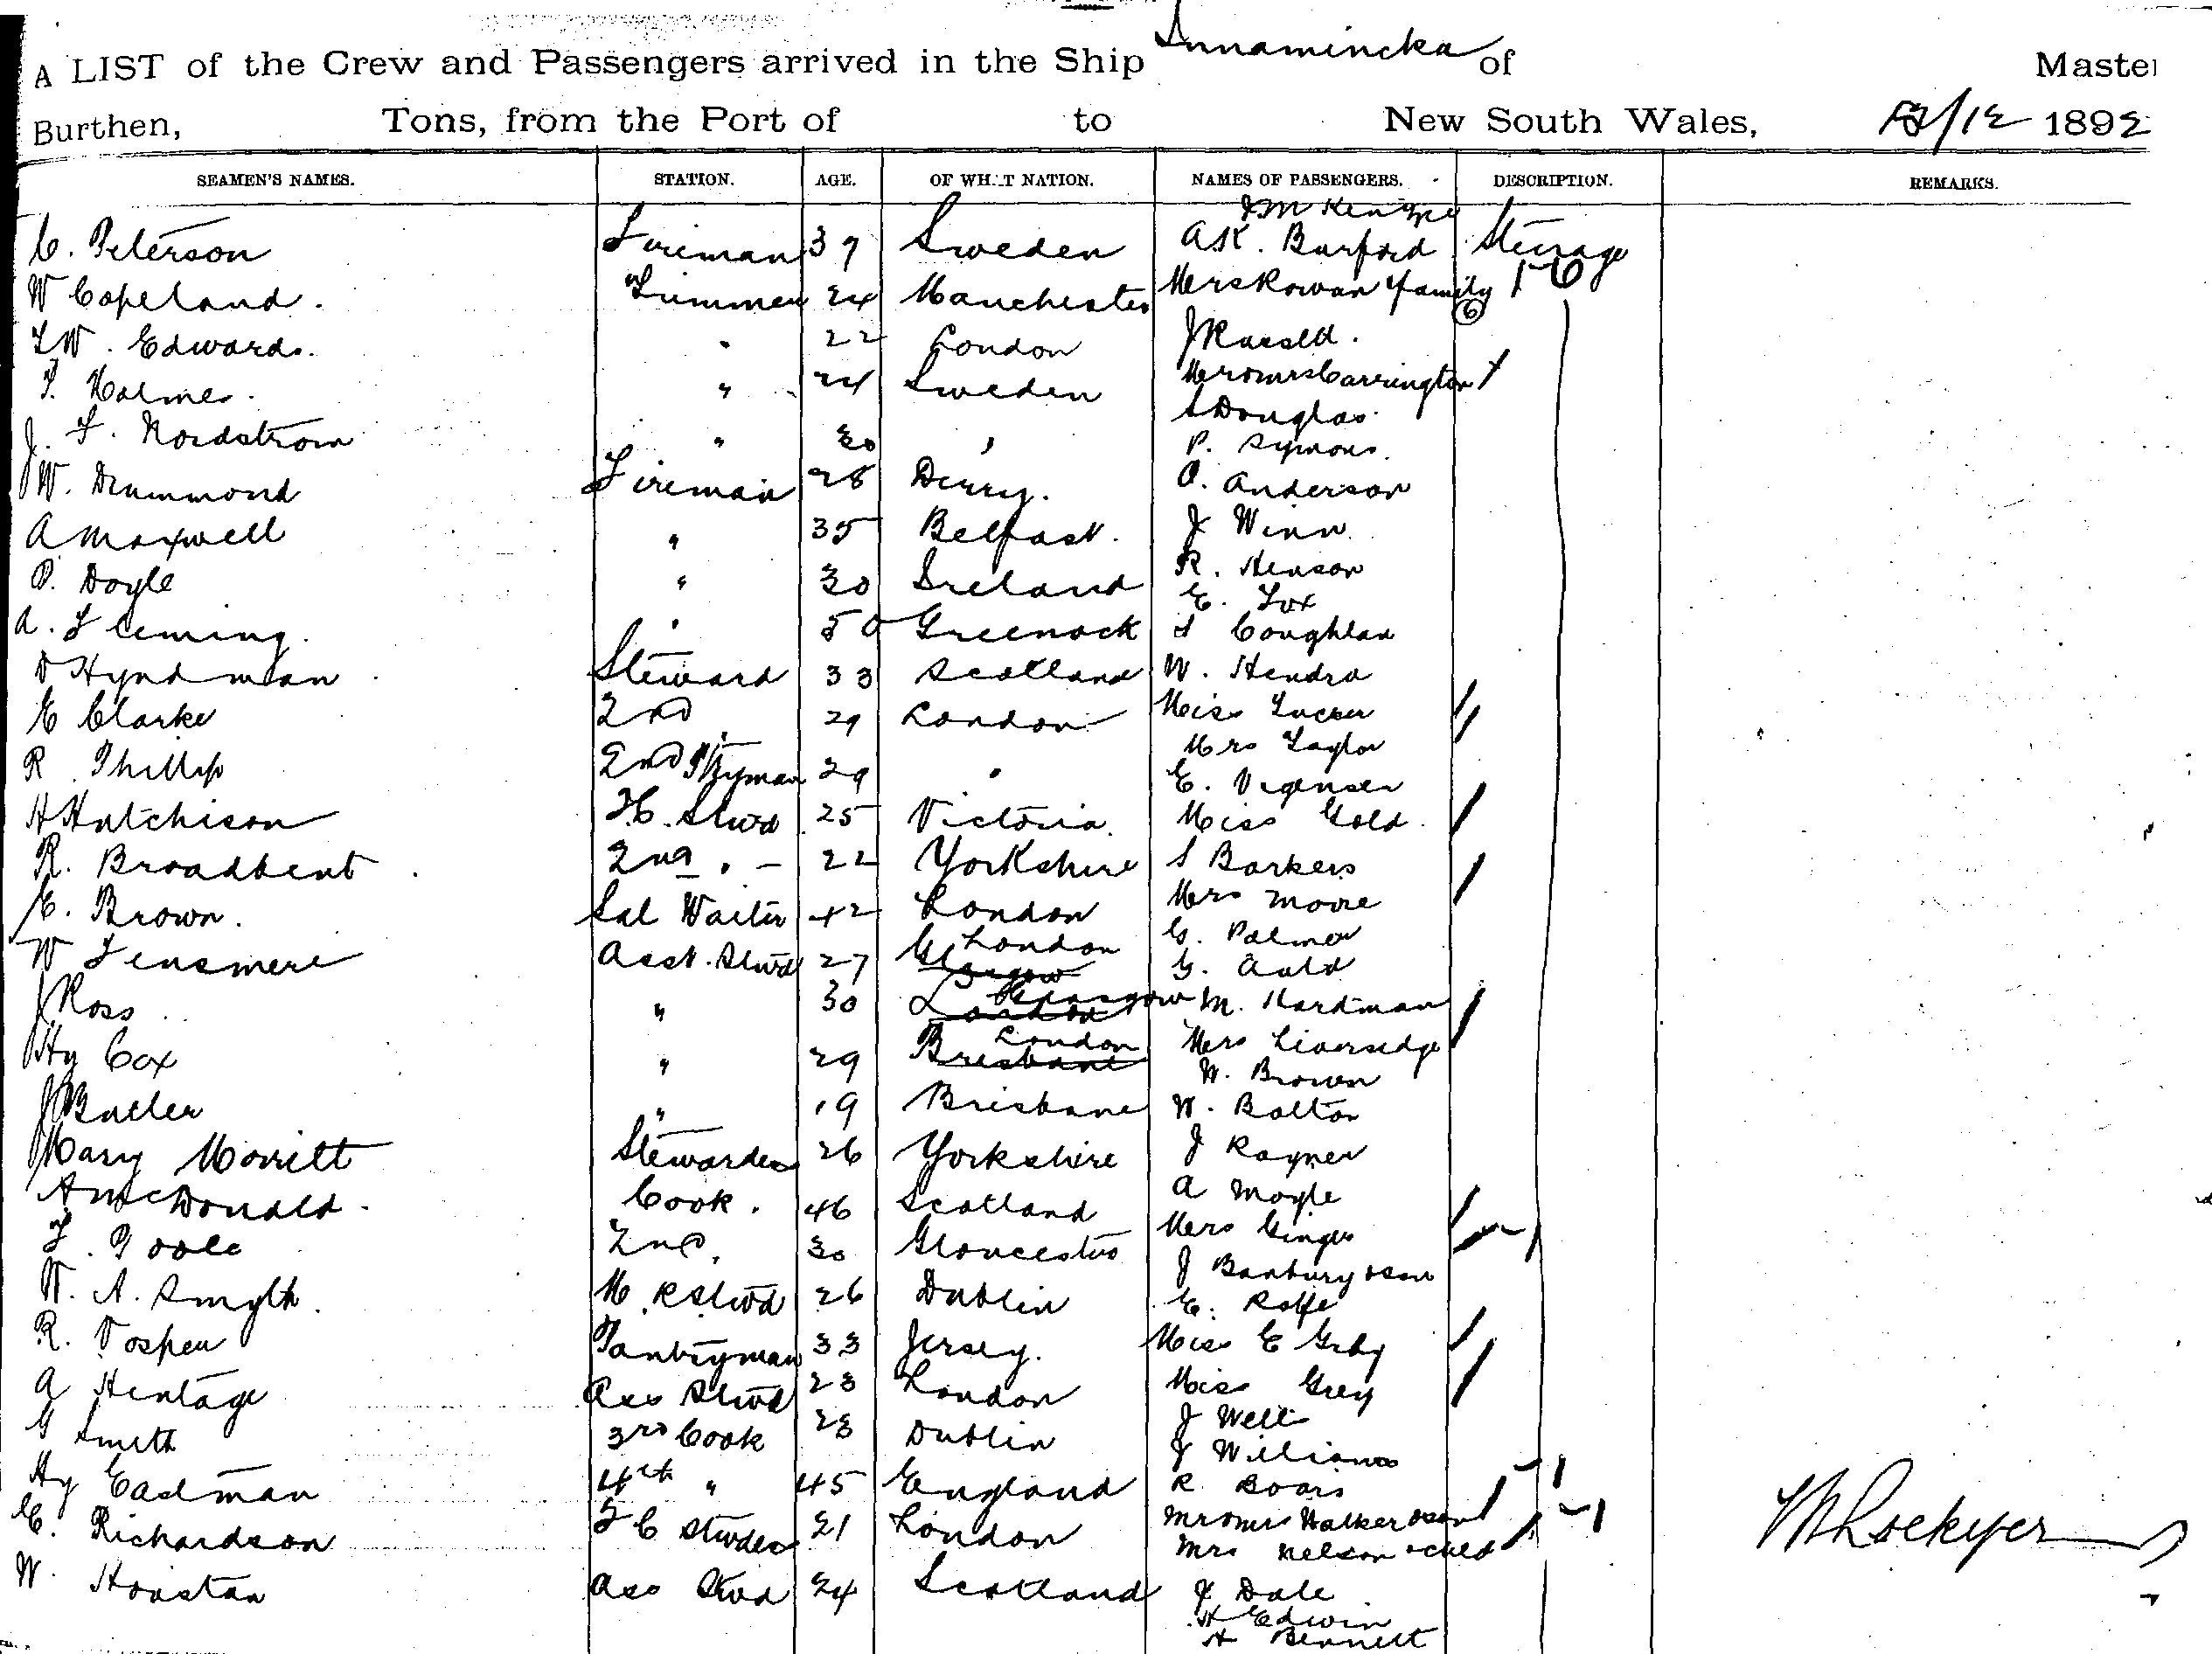 A LIST of the Crew and Passengers arrived in the Ship Innamincka of Master
Burthen, Tons, from the Port of to New South Wales, /12 1892
SEAMEN'S NAMES. STATION. AGE. OF WHAT NATION. NAMES OF PASSENGERS. DESCRIPTION. REMARKS.
J McKenzie
C. Peterson Fireman 39 Sweden A.K. Burford Steerage
W Copeland. Trimmer 24 Manchester Mrs Rowan & family 6
F W. Edwards. " 22 London J Russell.
F. Holmes. " 24 Sweden Mr & Mrs Carrington
S Douglas.
J. F. Nordstrom " 30 " P. Symons.
W. Drummond Fireman 28 Derry. O. Anderson
A Maxwell " 35 Belfast. J Winn
R. Henson
P. Doyle " 30 Ireland E. Fox
A. Fleming. " 50 Greenock S Coughlan
D Hyndman Steward 33 Scotland W. Hendra
E Clarke 2nd 29 London Miss Tucker
Mrs Taylor
R. Phillip 2nd P'tryman 29 " E. Vigensen
H Hutchison F.C. Stwd 25 Victoria. Miss Gold.
R. Broadbent 2nd " - 22 Yorkshire S Barkers
E. Brown. Sal Waiter 42 London Mrs Moore
G. Palmer
W Fensmere Asst. Stwd 27 Glasgow London G. Auld
J Ross " 30 London Glasgow M. Hardman
Hy Cox " 29 Brisbane London Mrs Liversedge
W. Brown
J Butler " 19 Brisbane W. Bolton
Mary Morritt Stewardess 26 Yorkshire J Rayner
A McDonald. Cook. 46 Scotland A Moyle
F. Poole 2nd. 30 Gloucester Mrs Ginger
J Banbury & son
W. A. Smyth. M. R Stwd 26 Dublin E. Rolfe
R. Vosper Pantryman 33 Jersey. Miss E Grey
A Hentage Ass Stwd 23 London Miss Grey
G Smith 3rd Cook 28 Dublin J Well
J Williams
Hy Eastman 4th " 45 England R. Boars
C. Richardson F C Stwdess 21 London Mr & Mrs Walker & son
Mrs Nelson & child
W. Houston Ass Stwd 24 Scotland J Dale
H Edwin
H Bennett